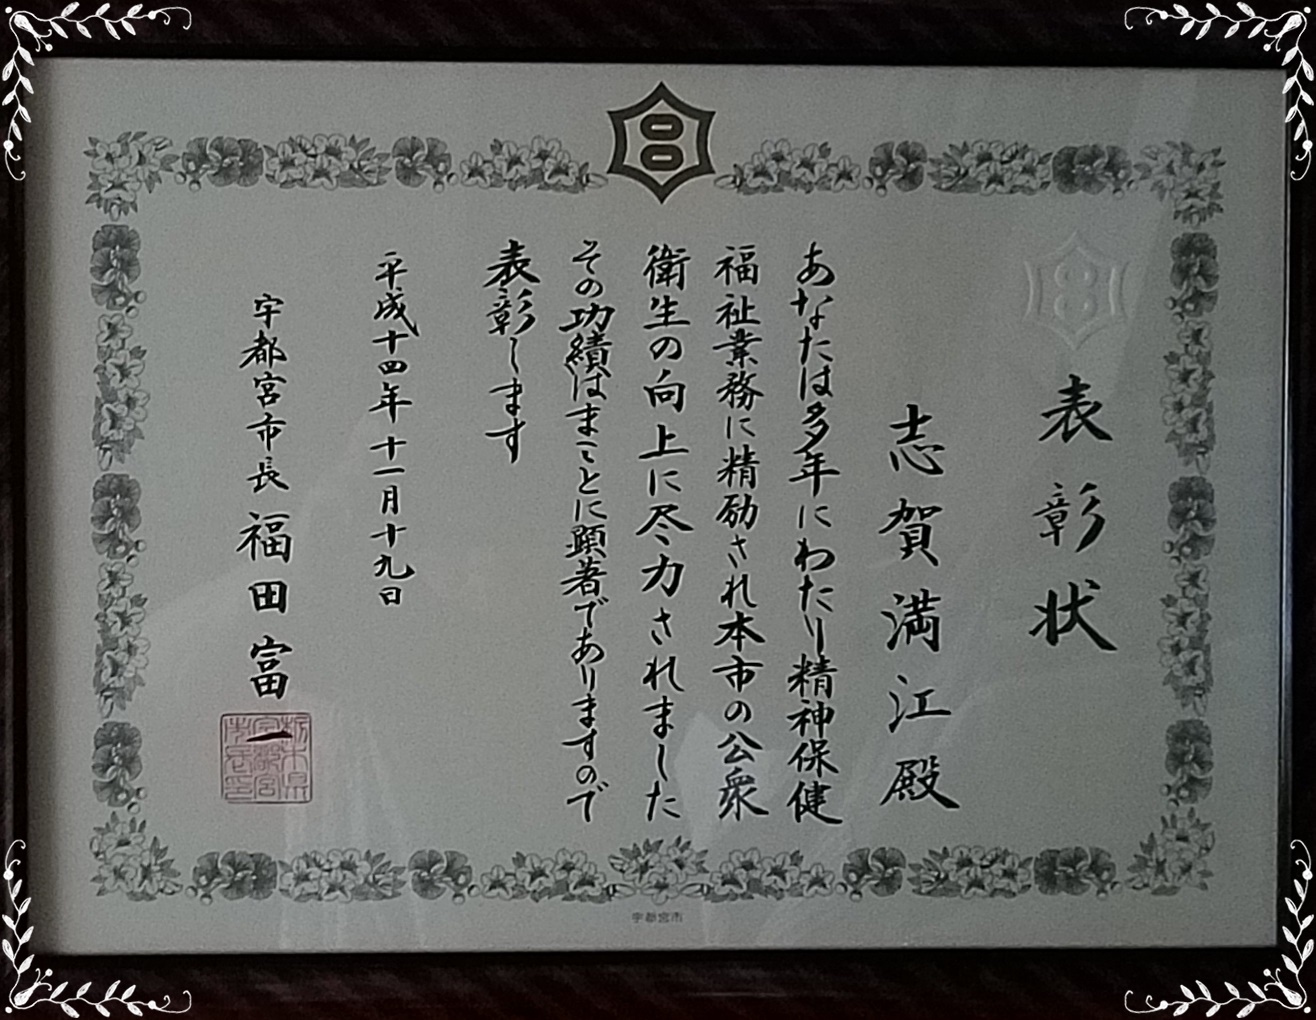 表彰状
志賀満江殿
あなたは多年にわたり精神保健
福祉業務に精励され本市の公衆
衛生の向上に尽力されました
その功績はまことに顕著でありますので
表彰します
平成十四年十一月十九日
宇都宮市長 福田富一
栃木県
宇都宮
市長印
宇都宮市